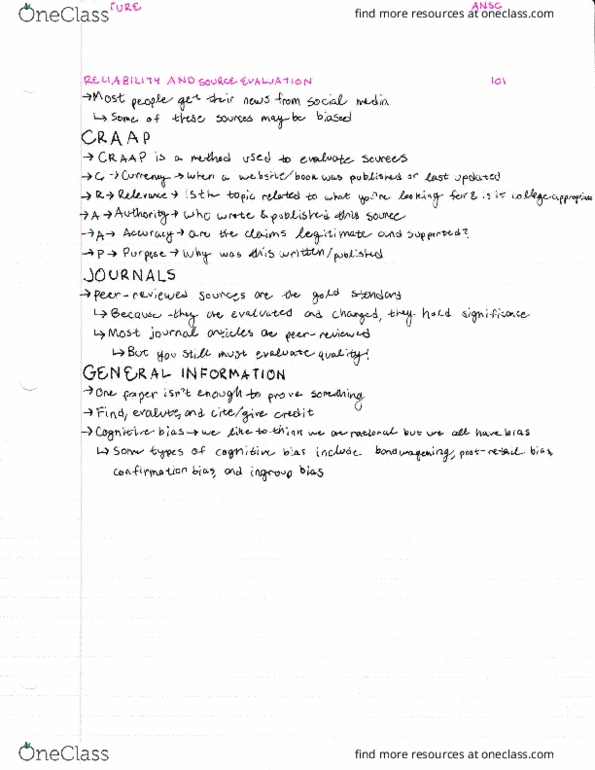 OneClass
TURE
ANSC
find more resources at oneclass.com
RELIABILITY AND SOURCE EVALUATION 101
→Most people get their news from social media
↳Some of these sources may be biased
CRAAP
→CRAAP is a method used to evaluate sources
→C→Currency→when a website/book was published or last updated
→R→Relevance→is the topic related to what you're looking for & is it college appropriate
→A→Authority→who wrote & published this source
→A→Accuracy→are the claims legitimate and supported?
→P→Purpose→why was this written/published
JOURNALS
→peer-reviewed sources are the gold standard
↳Because they are evaluated and changed, they hold significance
↳Most journal articles are peer-reviewed
↳But you still must evaluate quality!
GENERAL INFORMATION
→One paper isn't enough to prove something
→Find, evaluate, and cite/give credit
→Cognitive bias→we like to think we are rational but we all have bias
↳Some types of cognitive bias include bandwagening, post-retail bias,
confirmation bias, and ingroup bias
OneClass
find more resources at oneclass.com